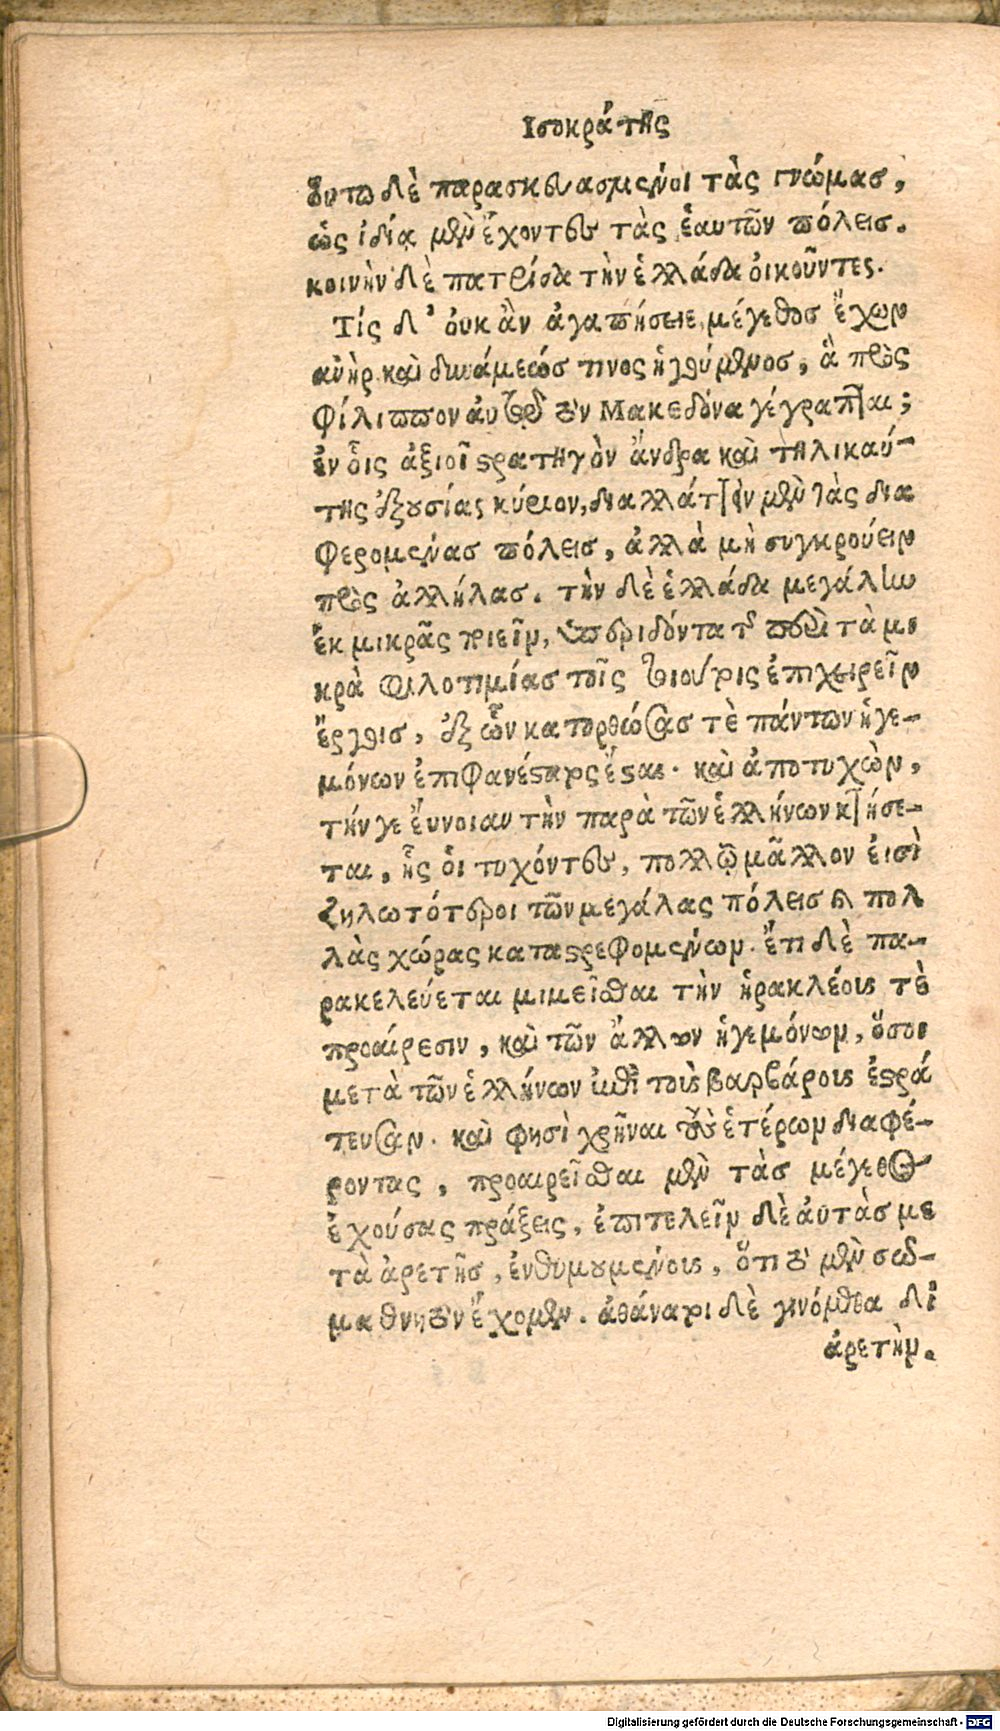 Ισοκράτης
ὅυτω δὲ παρασκευασμένοι τὰς γνώμας,
ὡς ἰδίᾳ μὲν ἔχοντες τὰς ἑαυτῶν πόλεις.
κοινὴν δὲ πατρίδα τὴν ἑλλάδα ὀικοῦντες.
Τίς δ' ὀυκ ἂν ἀγαπήσειε, μέγεθος ἔχων
ἀνὴρ καὶ δυνάμεώς τινος ἡγούμενος, ἃ πρὸς
Φίλιππον ἀυτῷ τὸν Μακεδόνα γέγραπται;
ἐν ὁις ἀξιοῖ στρατηγὸν ἄνδρα καὶ τηλικαύ-
της ἐξουσίας κύριον, διαλλάττειν μὲν τὰς δια
φερομένας πόλεις, ἀλλὰ μὴ συγκρούειν
πρὸς ἀλλήλας. τὴν δὲ ἑλλάδα μεγάλην
ἐκ μικρᾶς ποιεῖν, ὑπεριδόντα τῆς περὶ τὰ μι
κρὰ φιλοτιμίας τοῖς τοιούτοις ἐπιχειρεῖν
ἔργοις, ἐξ ὧν κατορθώσας τὲ πάντων ἡγε-
μόνων ἐπιφανέστατος ἔσται. καὶ ἀποτυχὼν,
τήν γε ἔυνοιαν τὴν παρὰ τῶν ἑλλήνων κτήσε-
ται, ἧς ὁι τυχόντες, πολλῷ μᾶλλον ἐισὶ
ζηλωτότεροι τῶν μεγάλας πόλεις καὶ πολ
λὰς χώρας καταστρεφομένων. ἔτι δὲ πα-
ρακελεύεται μιμεῖσθαι τὴν ἡρακλέους τὲ
προαίρεσιν, καὶ τῶν ἄλλων ἡγεμόνων, ὅσοι
μετὰ τῶν ἑλλήνων ἐπὶ τοὺς βαρβάρους ἐστρά
τευσαν. καὶ φησὶ χρῆναι τοὺς ἑτέρων διαφέ-
ροντας, προαιρεῖσθαι μὲν τὰς μέγεθος
ἐχούσας πράξεις, ἐπιτελεῖν δὲ ἀυτὰς με
τὰ ἀρετῆς, ἐνθυμουμένους, ὅτι τὸ μὲν σῶ-
μα θνητὸν ἔχομεν. ἀθάνατοι δὲ γινόμεθα δι'
ἀρετὴν.
Digitalisierung gefördert durch die Deutsche Forschungsgemeinschaft - DFG